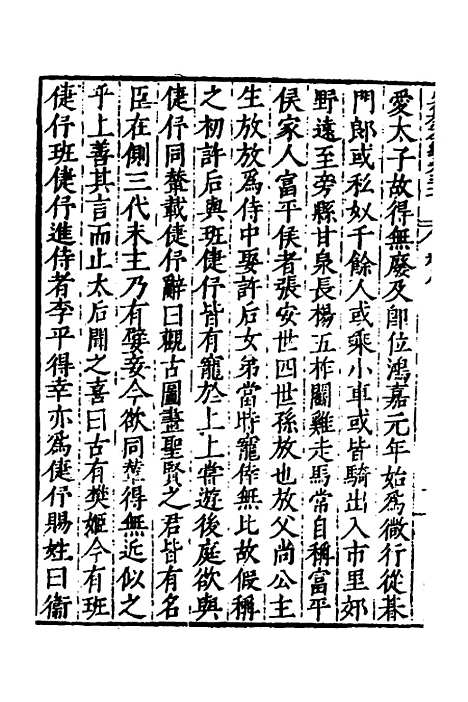 愛太子故得無廢及即位鴻嘉元年始為微行從朞
門郎或私奴千餘人或乘小車或皆騎出入市里郊
野遠至旁縣甘泉長楊五柞鬬雞走馬常自稱富平
侯家人富平侯者張安世四世孫放也放父尚公主
生放放為侍中娶許后女弟當時寵倖無比故假稱
之初許后與班倢伃皆有寵於上上嘗遊後庭欲與
倢伃同輦載倢伃辭曰觀古圖畫聖賢之君皆有名
臣在側三代末主乃有嬖妾今欲同輦得無近似之
乎上善其言而止太后聞之喜曰古有樊姬今有班
倢伃班倢伃進侍者李平得幸亦為倢伃賜姓曰衞